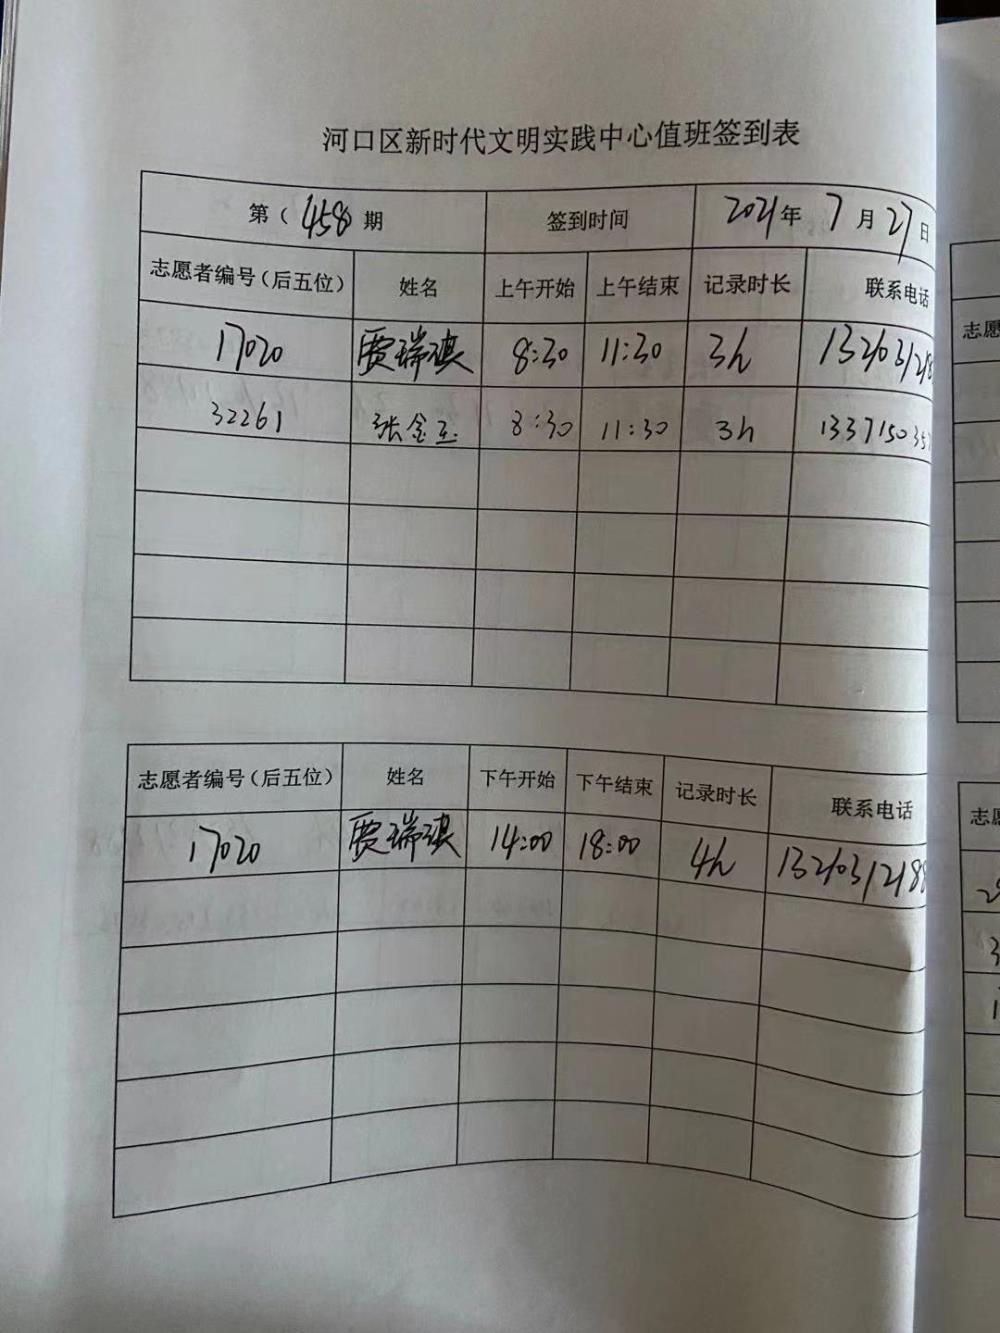 河口区新时代文明实践中心值班签到表
第（458）期 签到时间 2021年 7月27日
志愿者编号（后五位） 姓名 上午开始 上午结束 记录时长 联系电话
17020 贾瑞琪 8:30 11:30 3h 132031218
32261 张金玉 8:30 11:30 3h 133715035
志愿者编号（后五位） 姓名 下午开始 下午结束 记录时长 联系电话
17020 贾瑞琪 14:00 18:00 4h 1320312188
志愿
志愿